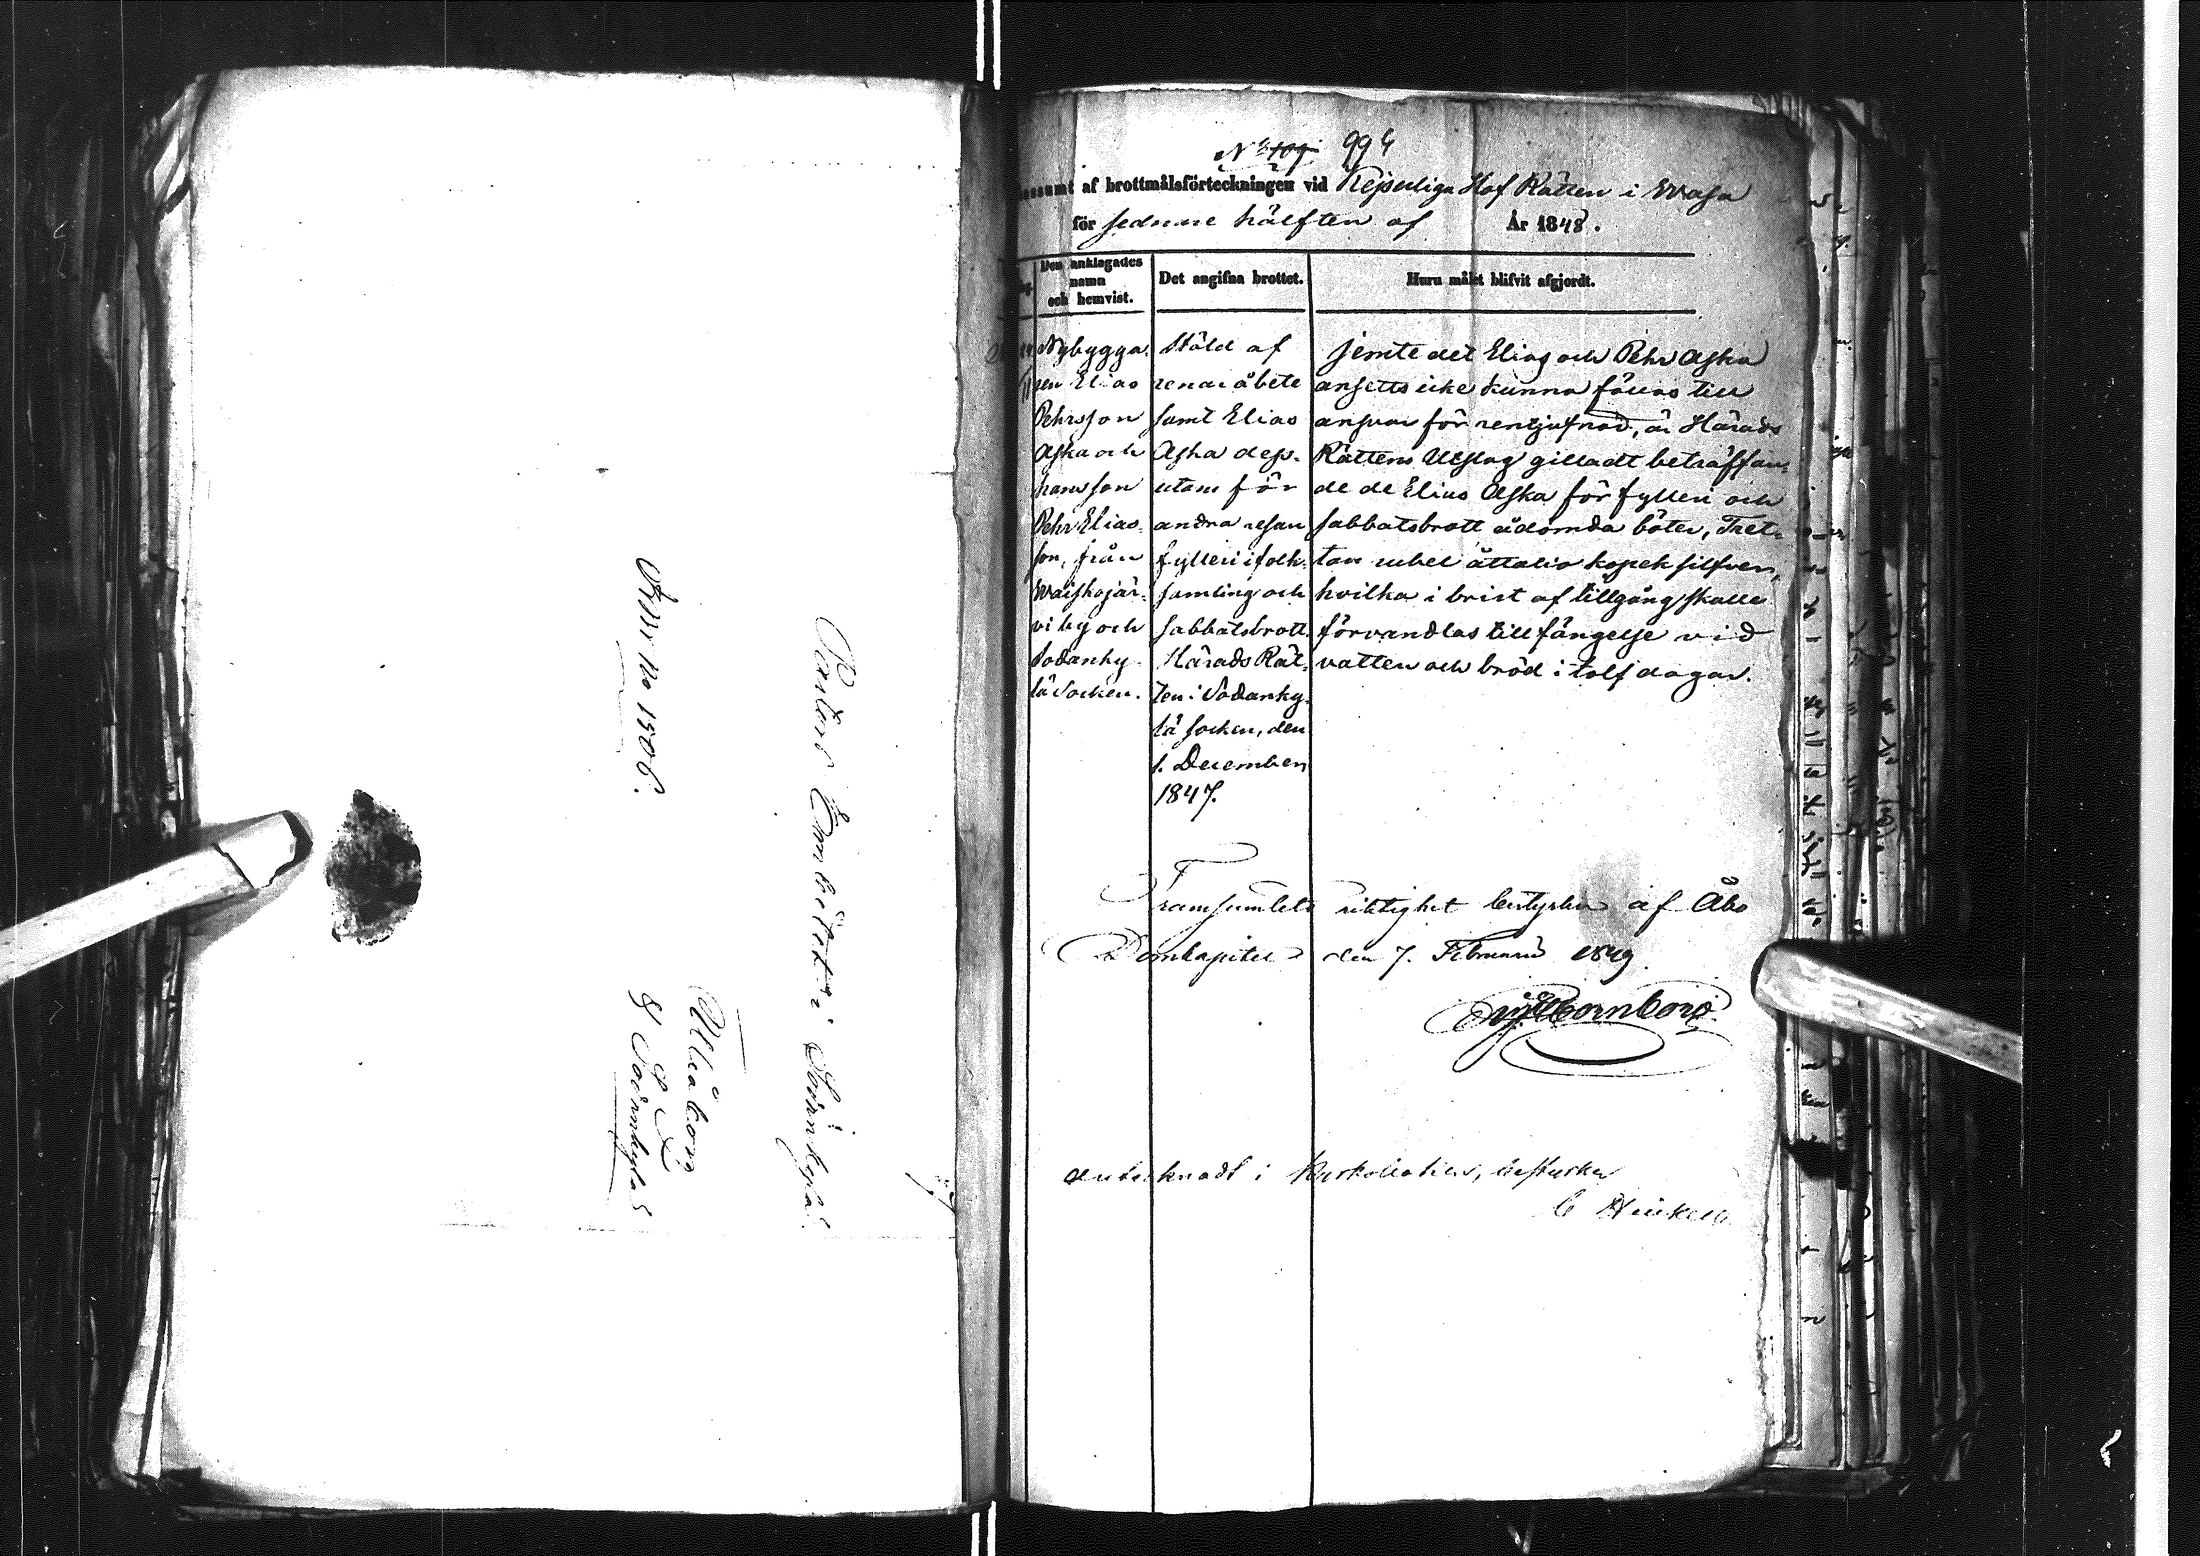 Pastors Embetet i
Uleåborg
No 994
af brottmålsförteckningen vid Kejserliga Hof Rätten i Wasa
för sednare hälften af År 1848.
Den anklagades namn och hemvist.
Det angifna brottet.
Huru målet blifvit afgjordt.
Nybygga-
ren Elias
Pehrsson
Aska och
hans son
Pehr Elias-
son, från
Waiskojär-
vi by och
Sodanky-
lä Socken.
Stöld af
renar åbete
samt Elias
Aska dess-
utom för
andra resan
fylleri i folk-
samling och
sabbatsbrott.
Härads Rät-
ten i Sodanky-
lä socken, den
1. December
1847.
Jemte det Elias och Pehr Aska
ansetts icke kunna fällas till
ansvar för rentjufnad, är Härads
Rättens Utslag gilladt beträffan-
de de Elias Aska för fylleri och
sabbatsbrott ådömda böter, Tret-
ton rubel åttatio kopek silfver,
hvilka i brist af tillgång skulle
förvandlas till fängelse vid
vatten och bröd i tolf dagar.
Transumtets riktighet bestyrkes af Åbo
Domkapitel den 7. Februarii 1849.
antecknadt i Kyrkoboken, bestyrker